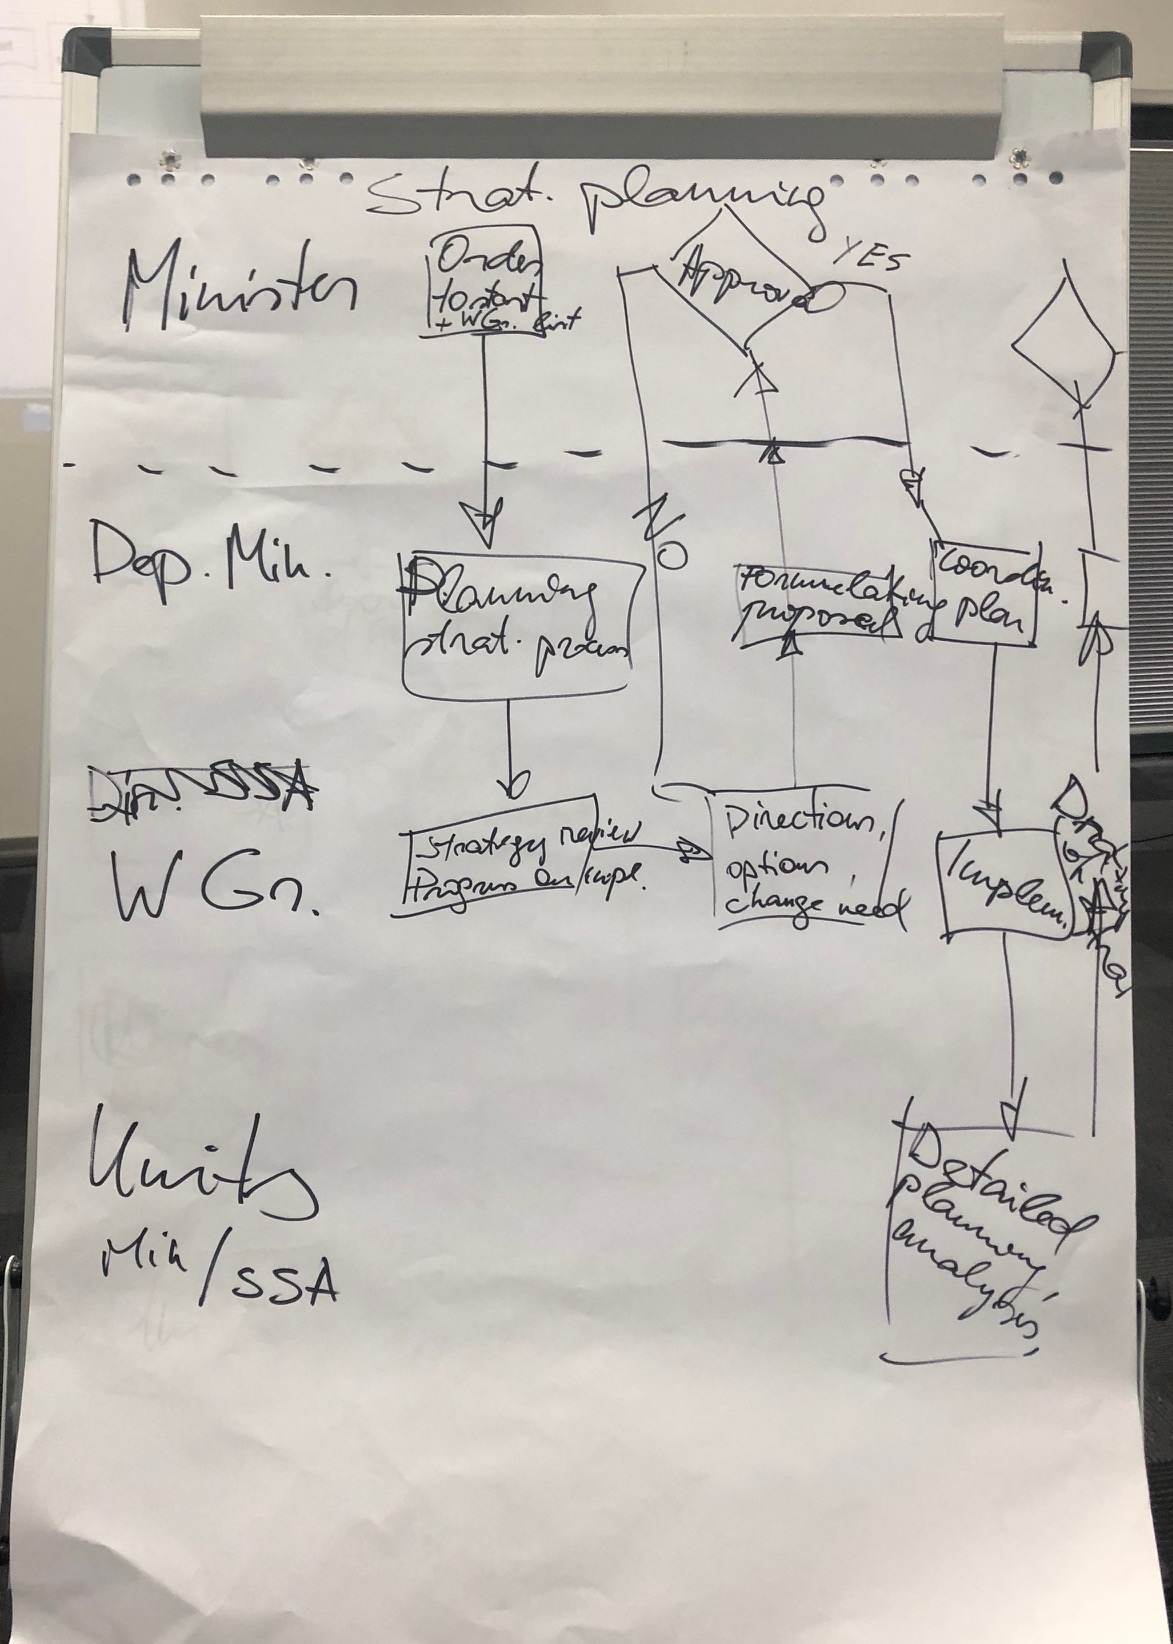 Strat. planning
Minister
Order
to start
+ W Gr. list
Approval
YES
Dep. Min.
Planning
strat. process
NO
Formulating
proposed
Coordin.
plan
W Gr.
Strategy review
Progress on impl.
Directions,
options,
change need
Implem.
Units
Min/SSA
Detailed
planning,
analysis,